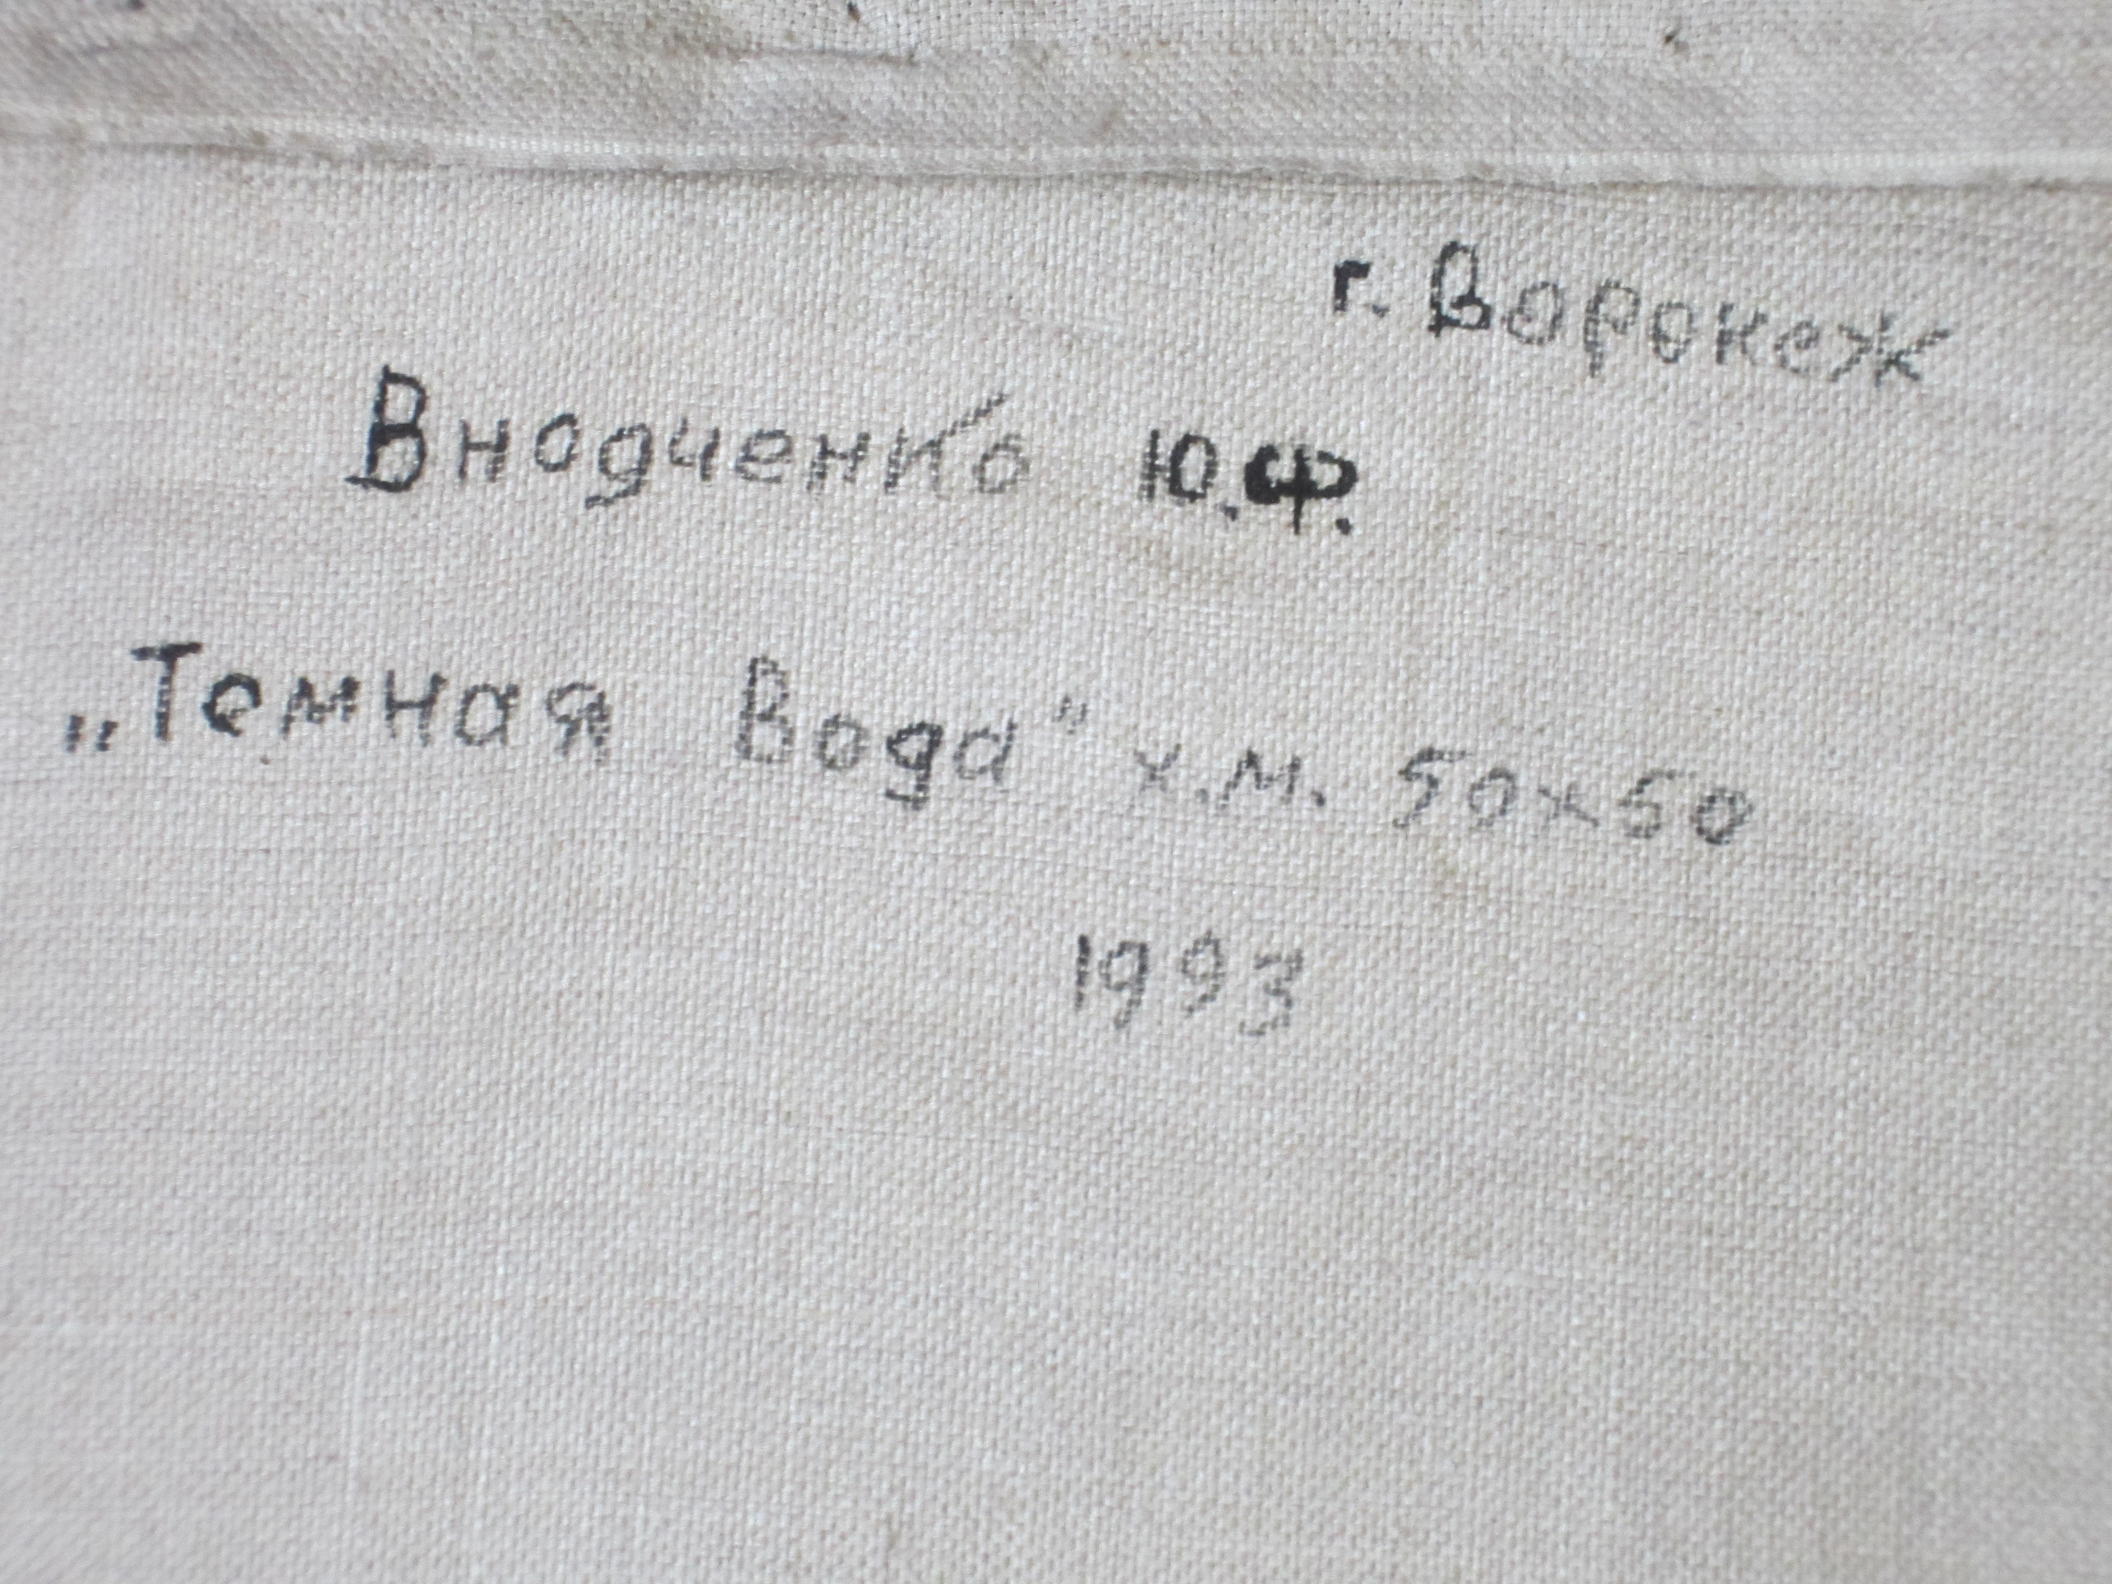 г. Воронеж
Внодченко Ю.Ф.
„Темная Вода" х.м. 50х50
1993